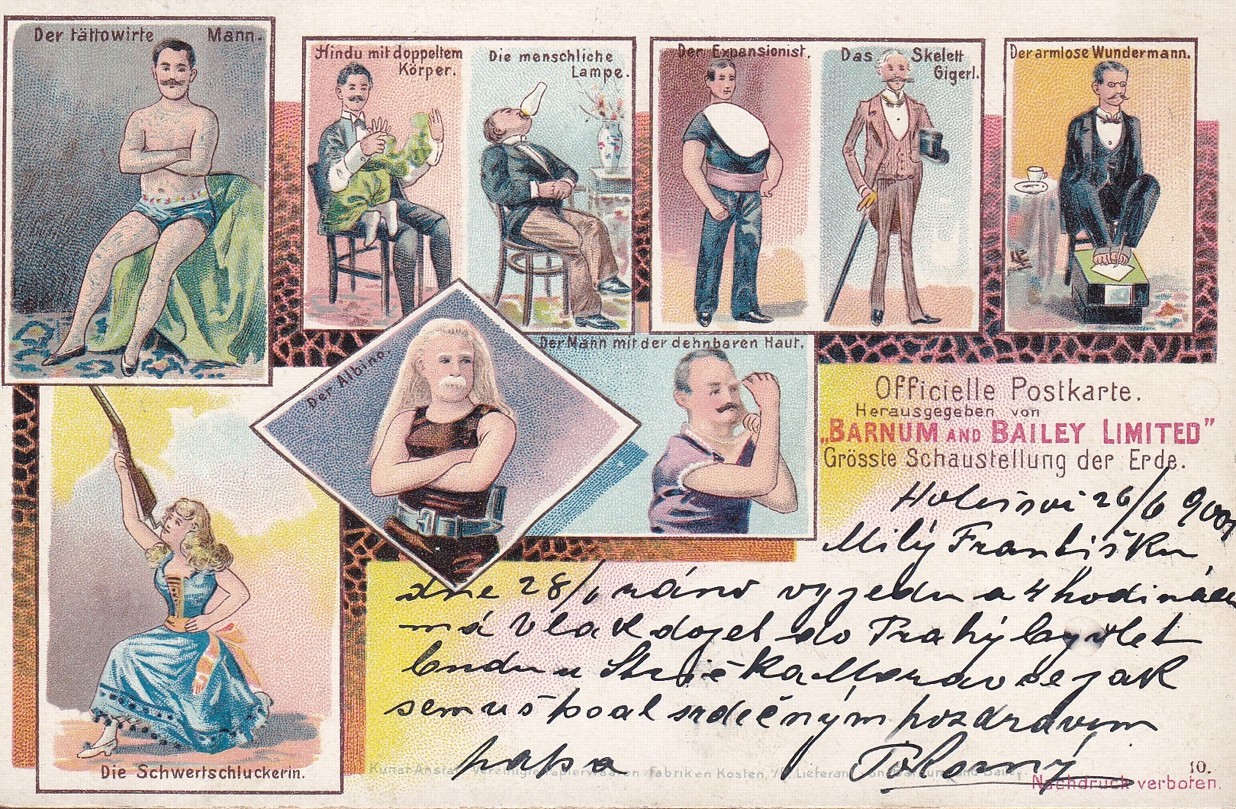 Der tättowirte Mann.
Hindu mit doppeltem
Körper.
Die menschliche
Lampe.
Der Expansionist.
Das Skelett
Gigerl.
Der armlose Wundermann.
Der Albino.
Der Mann mit der dehnbaren Haut.
Officielle Postkarte.
Herausgegeben von
„BARNUM AND BAILEY LIMITED"
Grösste Schaustellung der Erde.
26/6 900
Milý Františku
dne 28/6 ráno vyjedu a 4 hodinách
má vlak dojet do Prahy
budu u jak
sem uš psal srdečným pozdravem
papa Pokorný
Die Schwertschluckerin.
Kunst-Anstalt Vereinigte Papierwaaren-Fabriken Kosten, Lieferant von Barnum and Bailey.
10.
Nachdruck verboten.